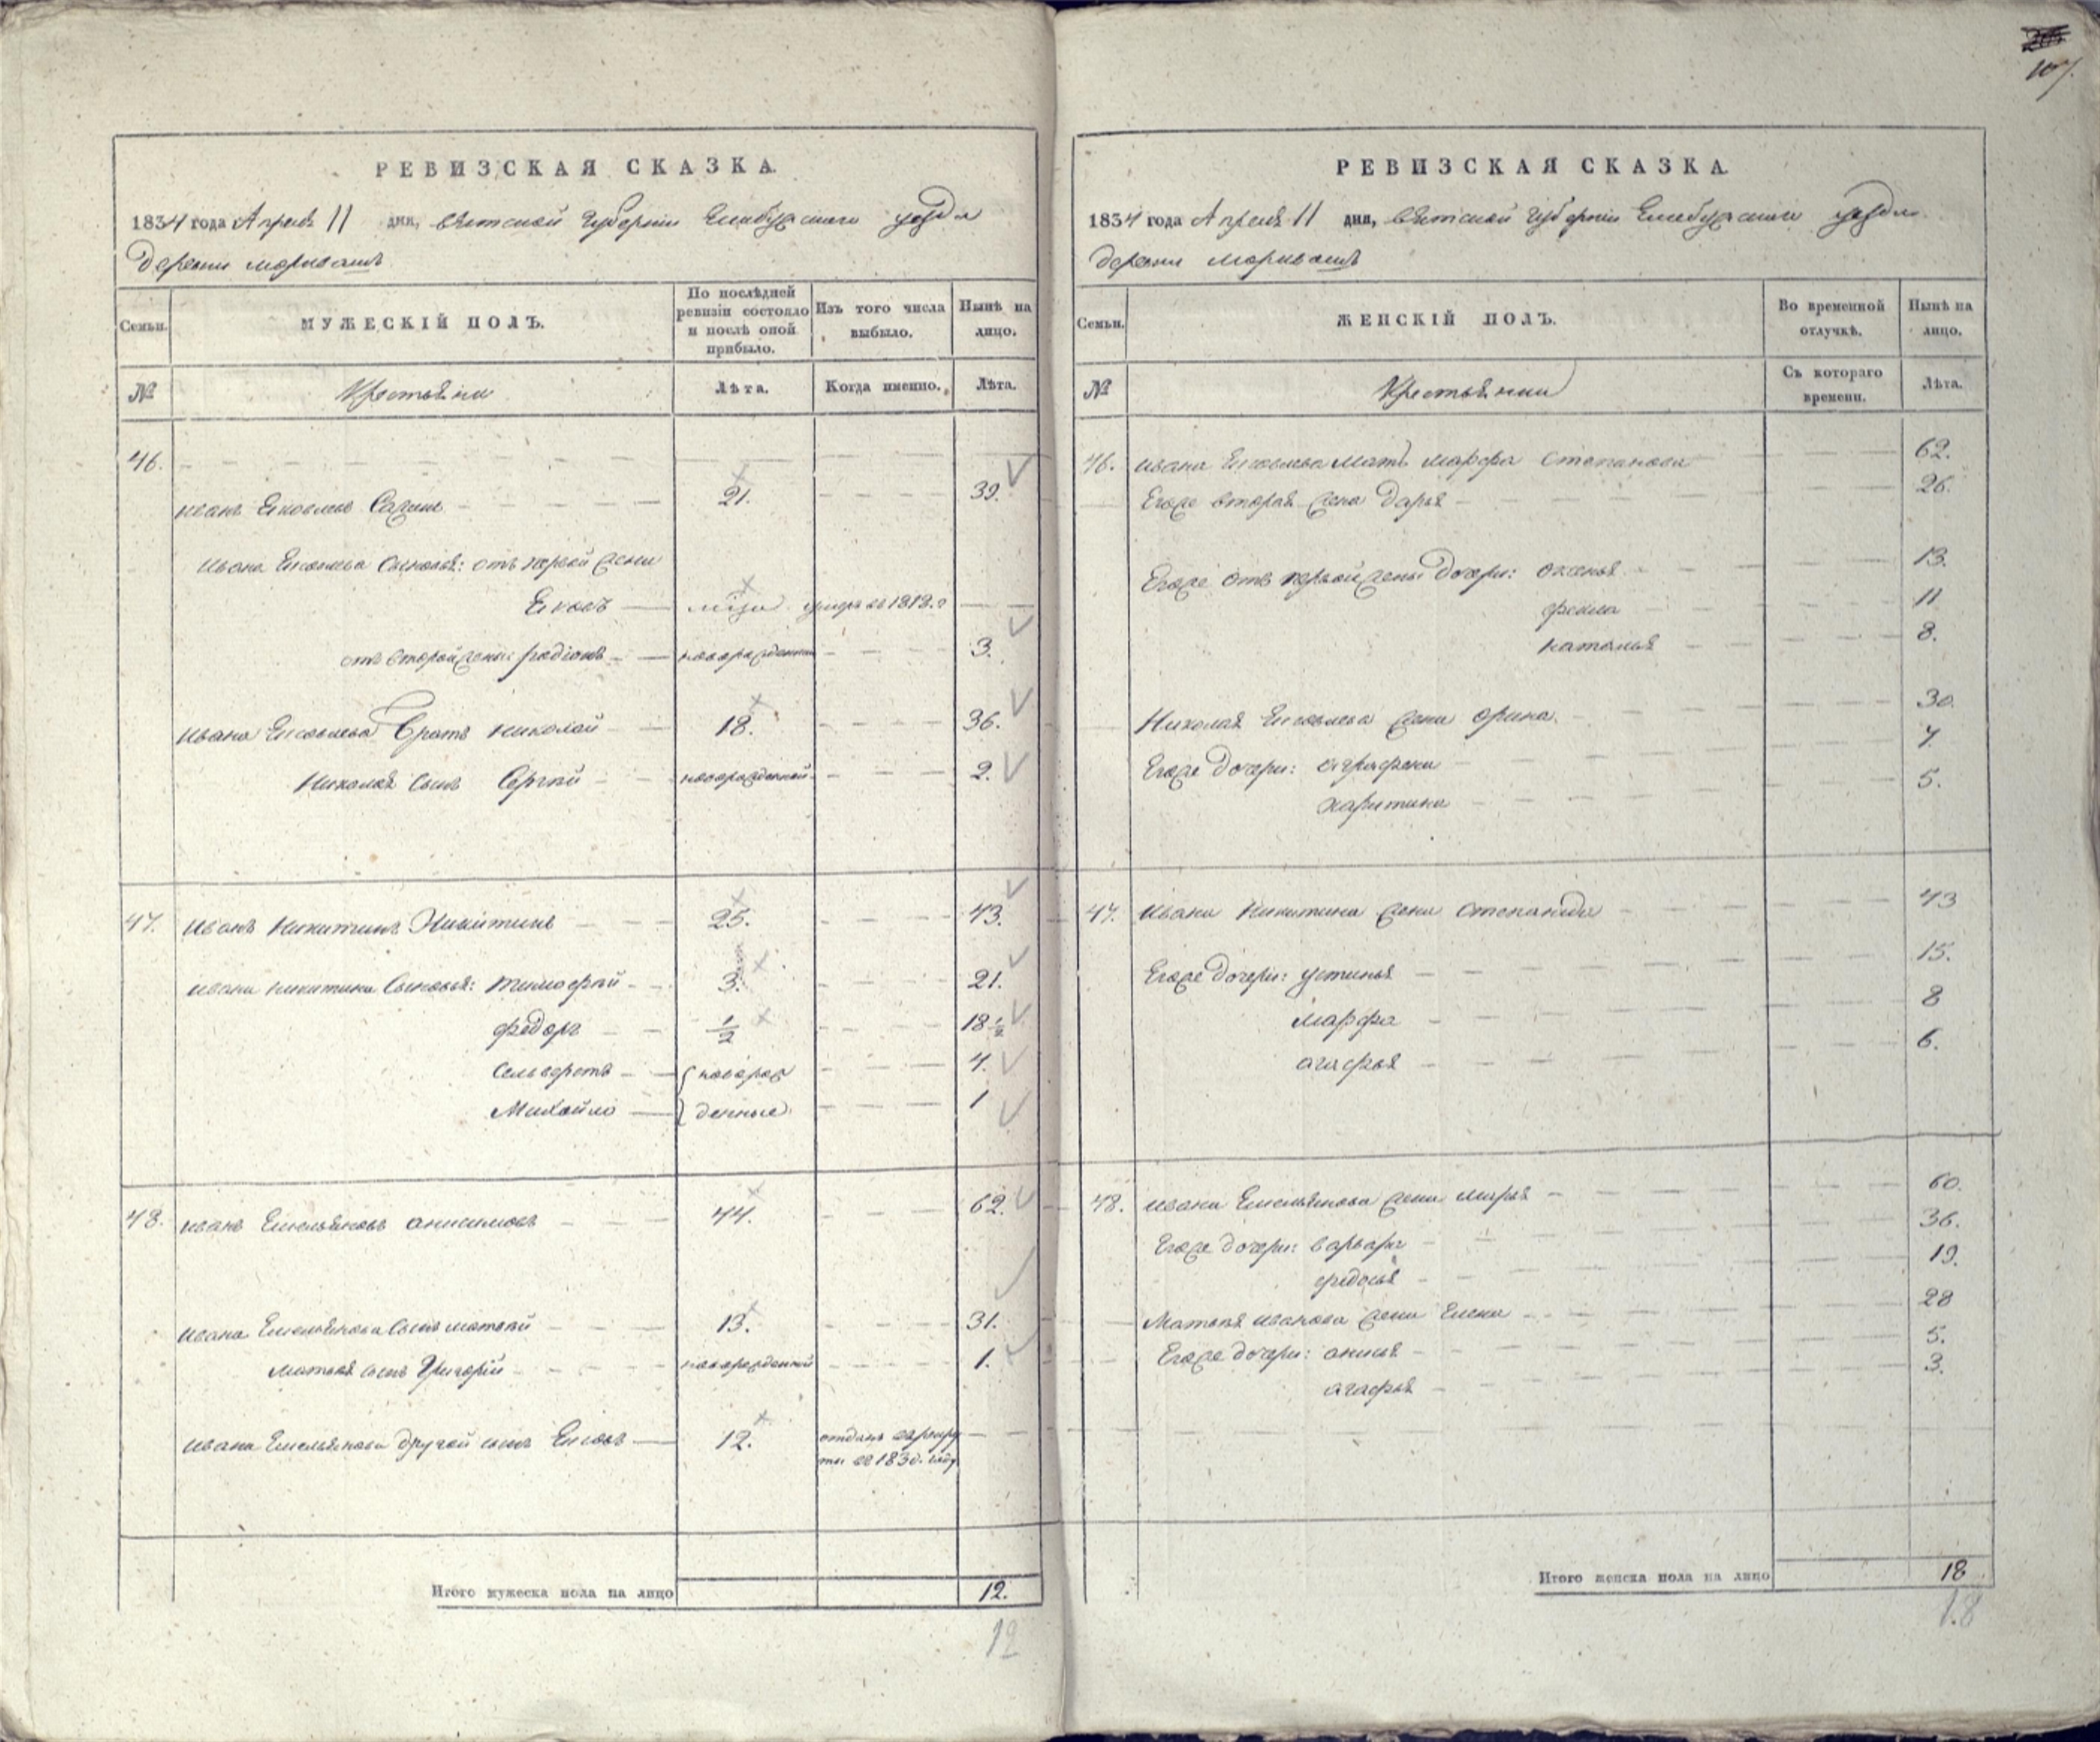 107.
РЕВИЗСКАЯ СКАЗКА.
1834 года Апреля 11 дня, вятской губернии Елабужскаго уезда
деревни морквашъ
Семьи.
МУЖЕСКІЙ ПОЛЪ.
По послѣдней ревизіи состояло и послѣ оной прибыло.
Изъ того числа выбыло.
Нынѣ на лицо.
№
Крестьяни
Лѣта.
Когда именно.
Лѣта.
46.
иванъ Яковлевъ 21. 39.
ивана Яковлева сыновья: отъ первой жены
Яковъ умеръ въ 1818. г
отъ второй жены: родіонъ новорожденный 3.
ивана Яковлева братъ николай 18. 36.
николая сынъ Сергей новорожденной 2.
47. иванъ никитинъ Никитинъ 25. 43.
ивана никитина сыновья: тимофей 3. 21.
федоръ 1/2 18 1/2
Селиверстъ новорож 4.
Михайло денные 1
48. иванъ Емельяновъ анисимовъ 44. 62.
ивана Емельянова сынъ матвей 13. 31.
матвея сынъ Григорій новорожденный 1.
ивана Емельянова другой сынъ Яковъ 12. отданъ в рекру
ты въ 1830. году
Итого мужеска пола на лицо 12.
12
РЕВИЗСКАЯ СКАЗКА.
1834 года Апреля 11 дня, вятской губерніи Елабужскаго уезда
деревни морквашъ
Семьи.
ЖЕНСКІЙ ПОЛЪ.
Во временной отлучкѣ.
Нынѣ на лицо.
№
Крестьянки
Съ котораго времени.
Лѣта.
46. ивана Яковлева мать марфа степанова 62.
Егоже вторая жена дарья 26.
Егоже отъ первой жены дочери: оксинья 13.
фекла 11
наталья 8.
Николая Яковлева жена орина 30.
Егоже дочери: аграфена 7.
харитина 5.
47. ивана никитина жена степанида 43
Егоже дочери: устинья 15.
марфа 8
агафья 6.
48. ивана Емельянова жена марья 60.
Егоже дочери: варвара 36.
федосья 19.
Матвея иванова жена Елена 28
Егоже дочери: анисья 5.
агафья 3.
Итого женска пола на лицо 18
18